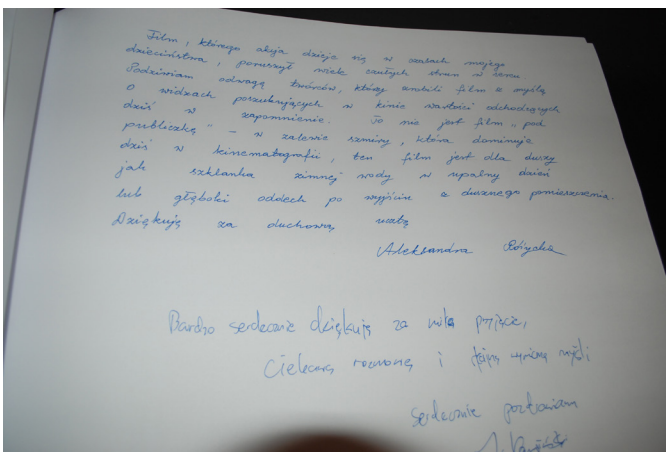 Film, którego akcja dzieje się w czasach mojego
dzieciństwa, poruszył wiele czułych strun w sercu
Podziwiam odwagę twórców, którzy zrobili film z myślą
o widzach poszukujących w kinie wartości odchodzących
dziś w zapomnienie. To nie jest film "pod
publiczkę" - w zalewie szmiry, która dominuje
dziś w kinematografii, ten film jest dla duszy
jak szklanka zimnej wody w upalny dzień
lub głęboki oddech po wyjściu z dusznego pomieszczenia.
Dziękuję za duchową ucztę
Aleksandra Różycka
Bardzo serdecznie dziękuję za miłe przyjęcie,
ciekawą rozmowę i wymianę myśli
serdecznie pozdrawiam